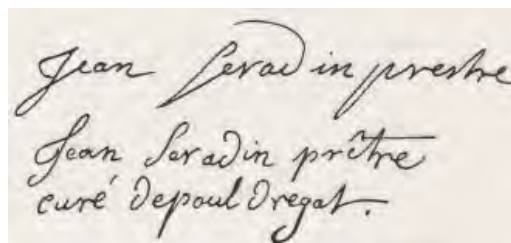 Jean Seradin prestre
Jean Seradin prêtre
curé depouldregat.